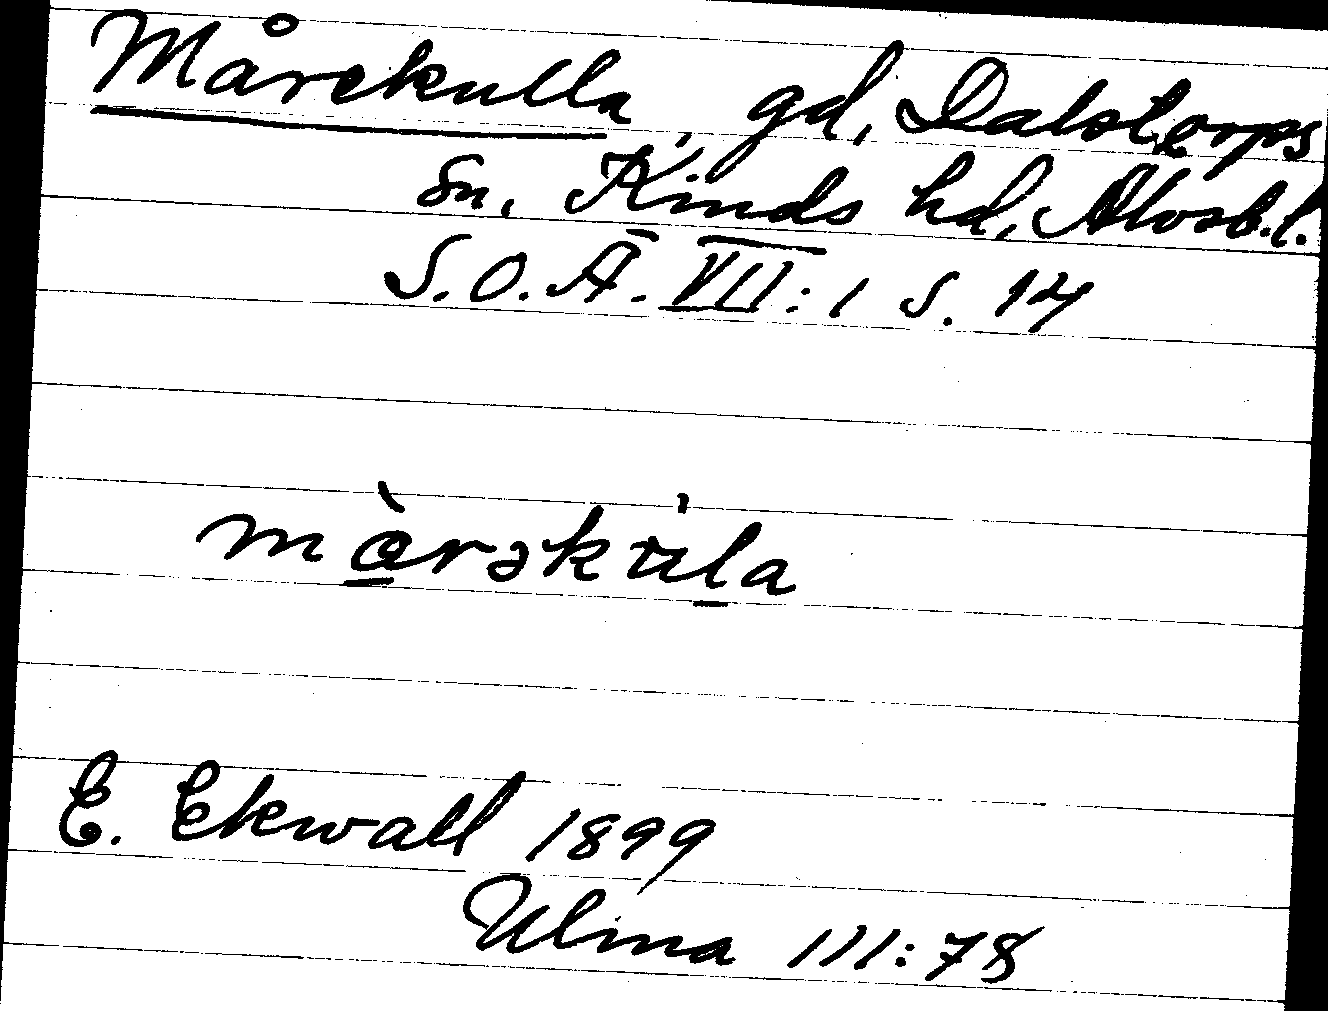 Mårekulla, gd, Dalstorps
sn. Kinds hd, Älvsb.l.
S.O.Ä. VII:1 s. 14
må̀rəkúla
E. Ekwall 1899
Ulma III:78